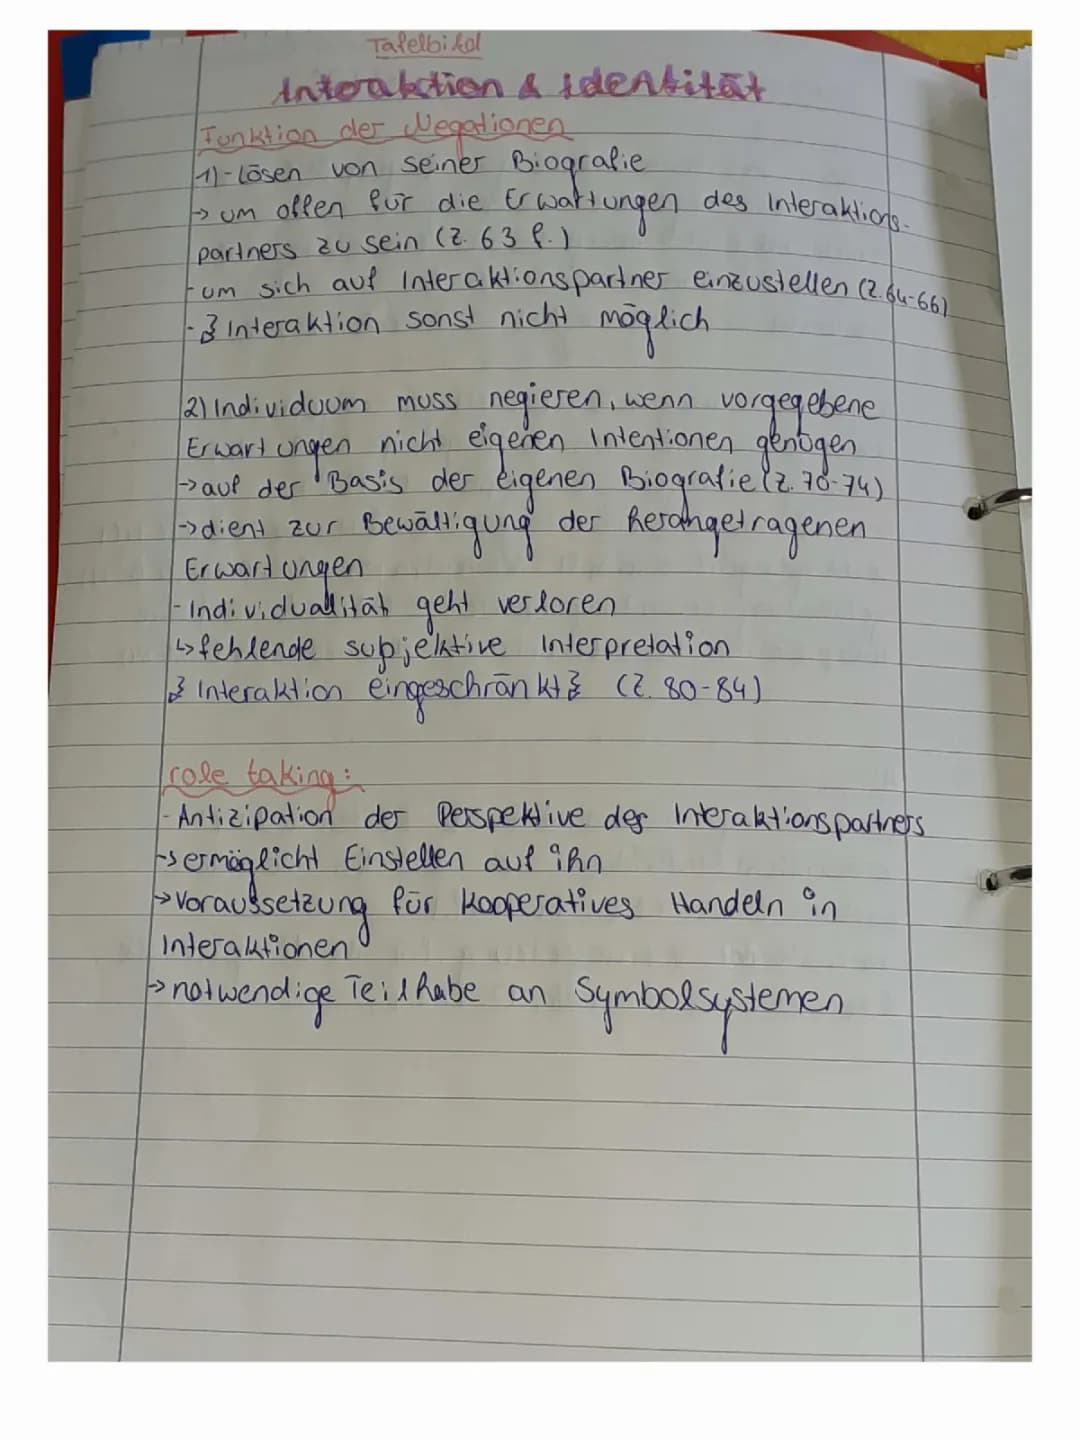 Tafelbild
Interaktion & Identität
Funktion der Negationen
1)-Lösen von seiner Biografie
→ um offen für die Erwartungen des Interaktions-
partners zu sein (Z. 63 f.)
-um sich auf Interaktionspartner einzustellen (Z.64-66)
- Interaktion sonst nicht möglich
2) Individuum muss negieren, wenn vorgegebene
Erwartungen nicht eigenen Intentionen genügen
→ auf der Basis der eigenen Biografie (Z. 70-74)
→ dient zur Bewältigung der herangetragenen
Erwartungen
- Individualität geht verloren
↳ fehlende subjektive Interpretation
Interaktion eingeschränkt (Z. 80-84)
role taking:
- Antizipation der Perspektive des Interaktionspartners
→ ermöglicht Einstellen auf ihn
→ Voraussetzung für kooperatives Handeln in
Interaktionen
→ notwendige Teilhabe an Symbolsystemen